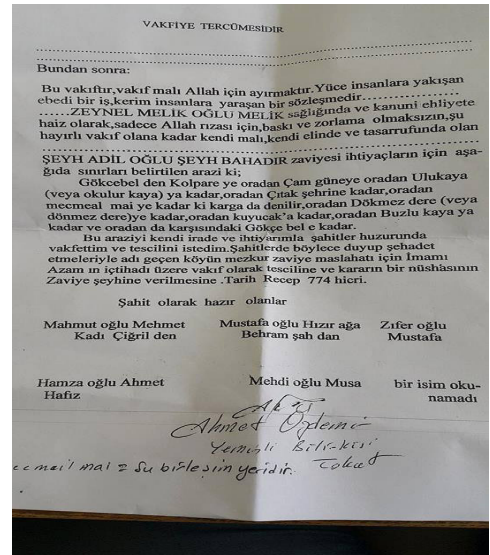 VAKFİYE TERCÜMESİDİR
Bundan sonra:
Bu vakıftır,vakıf malı Allah için ayırmaktır.Yüce insanlara yakışan
ebedi bir iş,kerim insanlara yaraşan bir sözleşmedir....................
.......ZEYNEL MELİK OĞLU MELİK sağlığında ve kanuni ehliyete
haiz olarak,sadece Allah rızası için,baskı ve zorlama olmaksızın,şu
hayırlı vakıf olana kadar kendi malı,kendi elinde ve tasarrufunda olan
ŞEYH ADİL OĞLU ŞEYH BAHADIR zaviyesi ihtiyaçların için aşa-
ğıda sınırları belirtilen arazi ki;
Gökcebel den Kolpare ye oradan Çam güneye oradan Ulukaya
(veya okulur kaya) ya kadar,oradan Çıtak şehrine kadar,oradan
mecmeal mai ye kadar ki karga da denilir,oradan Dökmez dere (veya
dönmez dere)ye kadar,oradan kuyucak'a kadar,oradan Buzlu kaya ya
kadar ve oradan da karşısındaki Gökçe bel e kadar.
Bu araziyi kendi irade ve ihtiyarımla şahitler huzurunda
vakfettim ve tescilini istedim.Şahitlerde böylece duyup şehadet
etmeleriyle adı geçen köyün mezkur zaviye maslahatı için İmamı
Azam ın içtihadı üzere vakıf olarak tesciline ve kararın bir nüshasının
Zaviye şeyhine verilmesine .Tarih Recep 774 hicri.
Şahit olarak hazır olanlar
Mahmut oğlu Mehmet Mustafa oğlu Hızır ağa Zıfer oğlu
Kadı Çiğril den Behram şah dan Mustafa
Hamza oğlu Ahmet Mehdi oğlu Musa bir isim oku-
Hafız namadı
Ahmet Özdemir
Yeminli Bilirkişi
mai = Su birleşim yeridir. Tokat